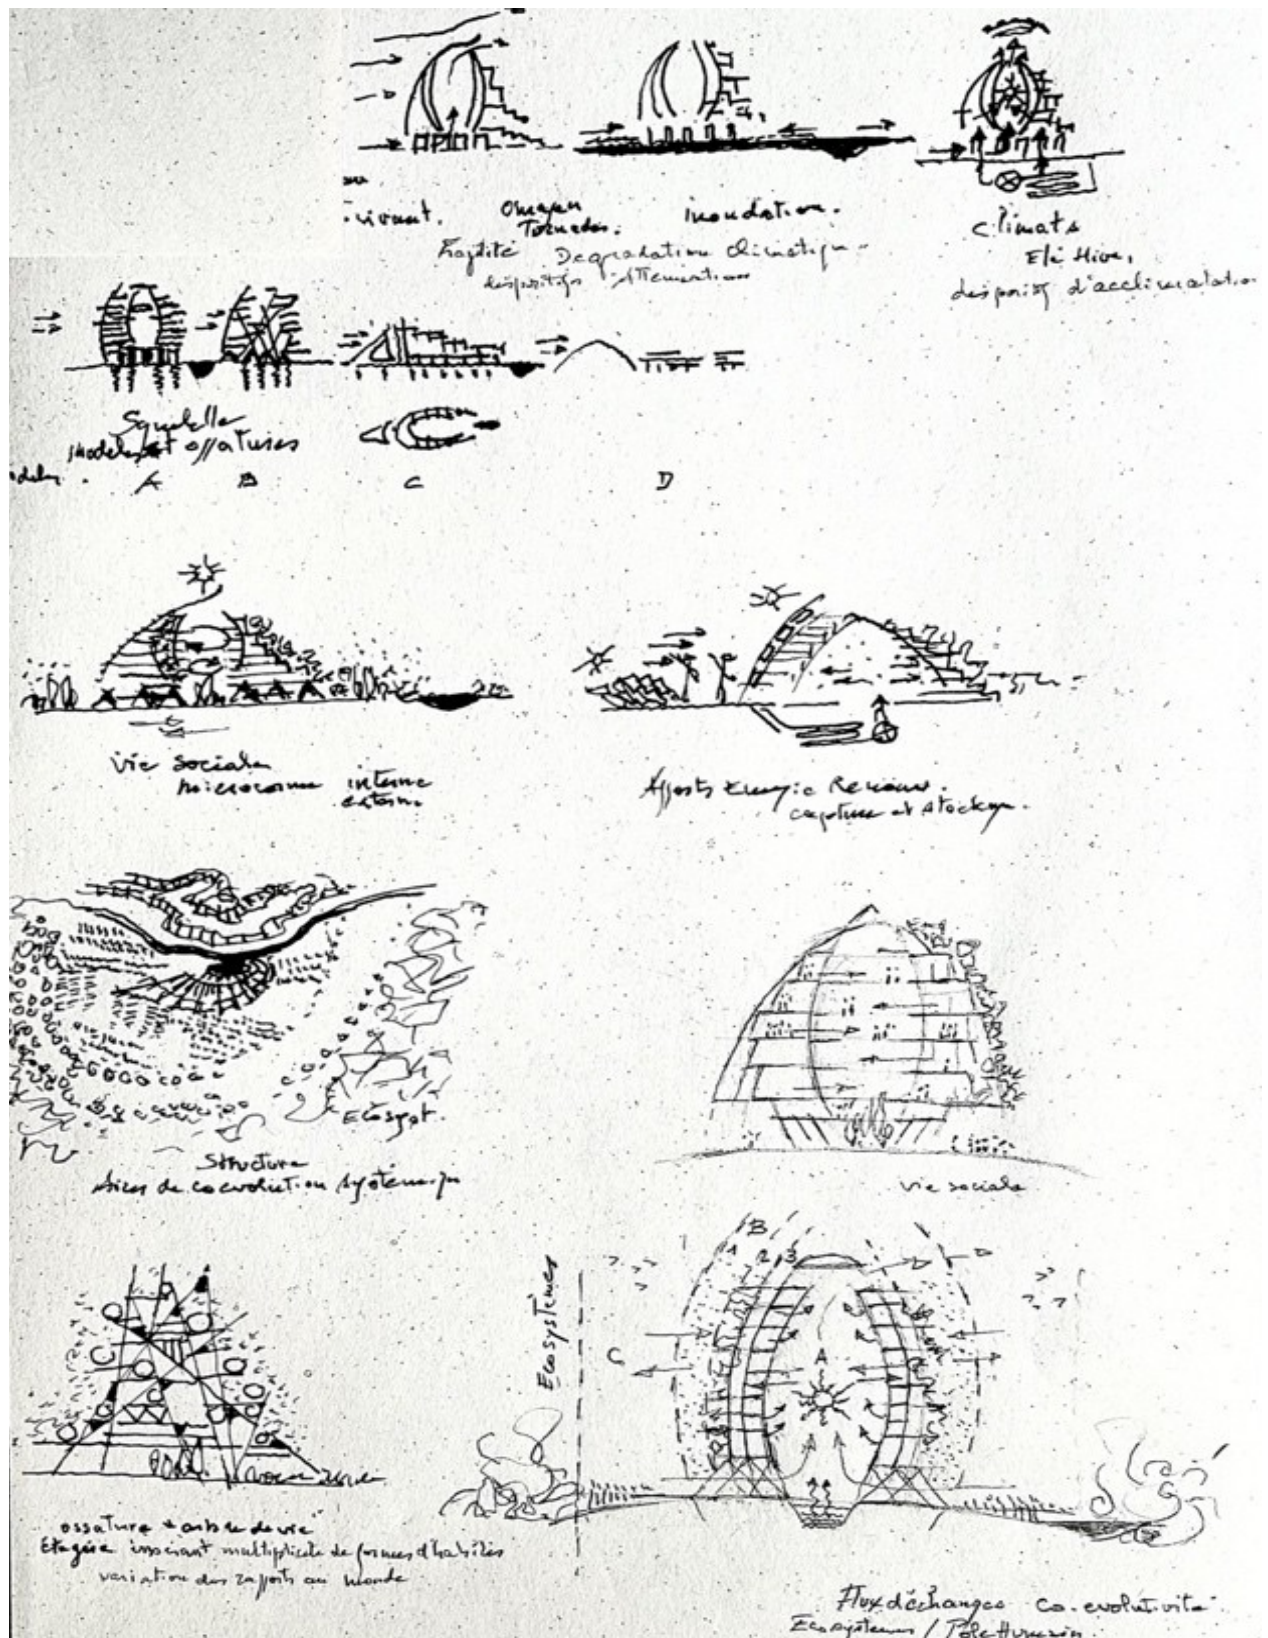 vivant.
Ouragan
Tornades.
inondation.
Fragilité Degradation climatique
dispositifs d'attenuation
climats
Eté Hiver,
d'acclimatation
Squelette
modeles et ossatures
A B C D
vie sociale
microcosme interne
externe
Apports Energie Renouv.
capture et stockage.
Ecosyst.
Structure
Aires de coevolution systemique
vie sociale
B
1 2 3
A
C
Ecosystèmes
ossature arbre de vie
Etagère multiplicité de formes d'habités
variation des rapports au monde
Flux d'échanges co-evolutivité
Ecosystèmes / Pôle Humain